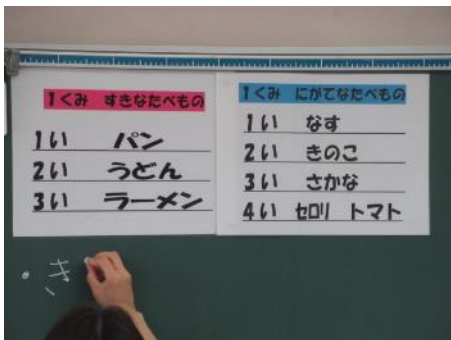 1くみ すきなたべもの
1い パン
2い うどん
3い ラーメン
1くみ にがてなたべもの
1い なす
2い きのこ
3い さかな
4い セロリ トマト
・き